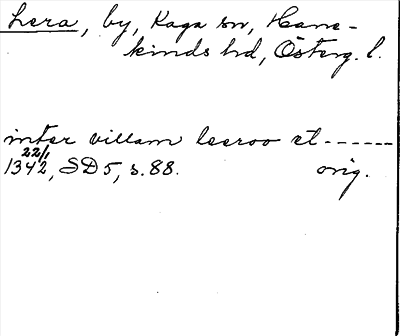 Lera, by, Kaga sn, Hane-
kinds hd, Österg. l.
inter villam leeroo et ------
22/1
1342, SD5, s. 88. orig.